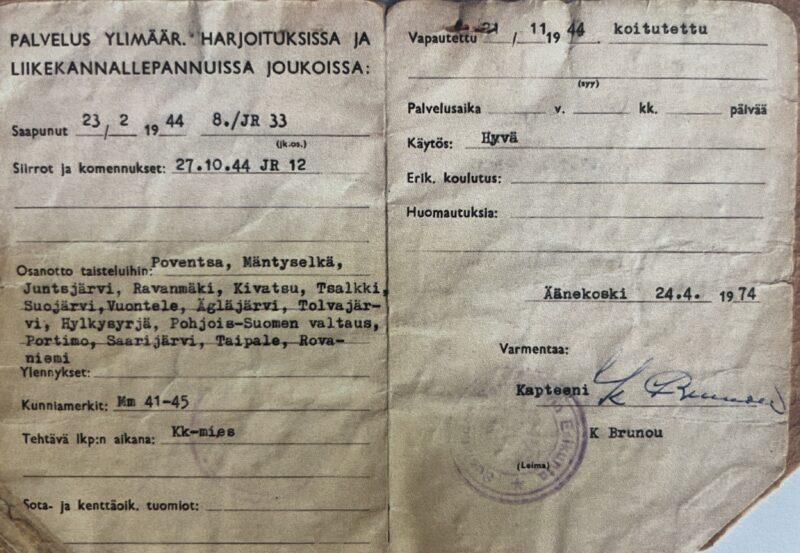 PALVELUS YLIMÄÄR. HARJOITUKSISSA JA
LIIKEKANNALLEPANNUISSA JOUKOISSA:
Saapunut 23 / 2 1944 8./JR 33
(jk.os.)
Siirrot ja komennukset: 27.10.44 JR 12
Osanotto taisteluihin: Poventsa, Mäntyselkä,
Juntsjärvi, Ravanmäki, Kivatsu, Tsalkki,
Suojärvi,Vuontele, Ägläjärvi, Tolvajär-
vi, Hylkysyrjä, Pohjois-Suomen valtaus,
Portimo, Saarijärvi, Taipale, Rova-
niemi
Ylennykset:
Kunniamerkit: Mm 41-45
Tehtävä lkp:n aikana: Kk-mies
Sota- ja kenttäoik. tuomiot:
Vapautettu 21 / 11 1944. koitutettu
(syy)
Palvelusaika v. kk. päivää
Käytös: Hyvä
Erik. koulutus:
Huomautuksia:
Äänekoski 24.4. 1974
Varmentaa:
Kapteeni
K Brunou
(Leima)